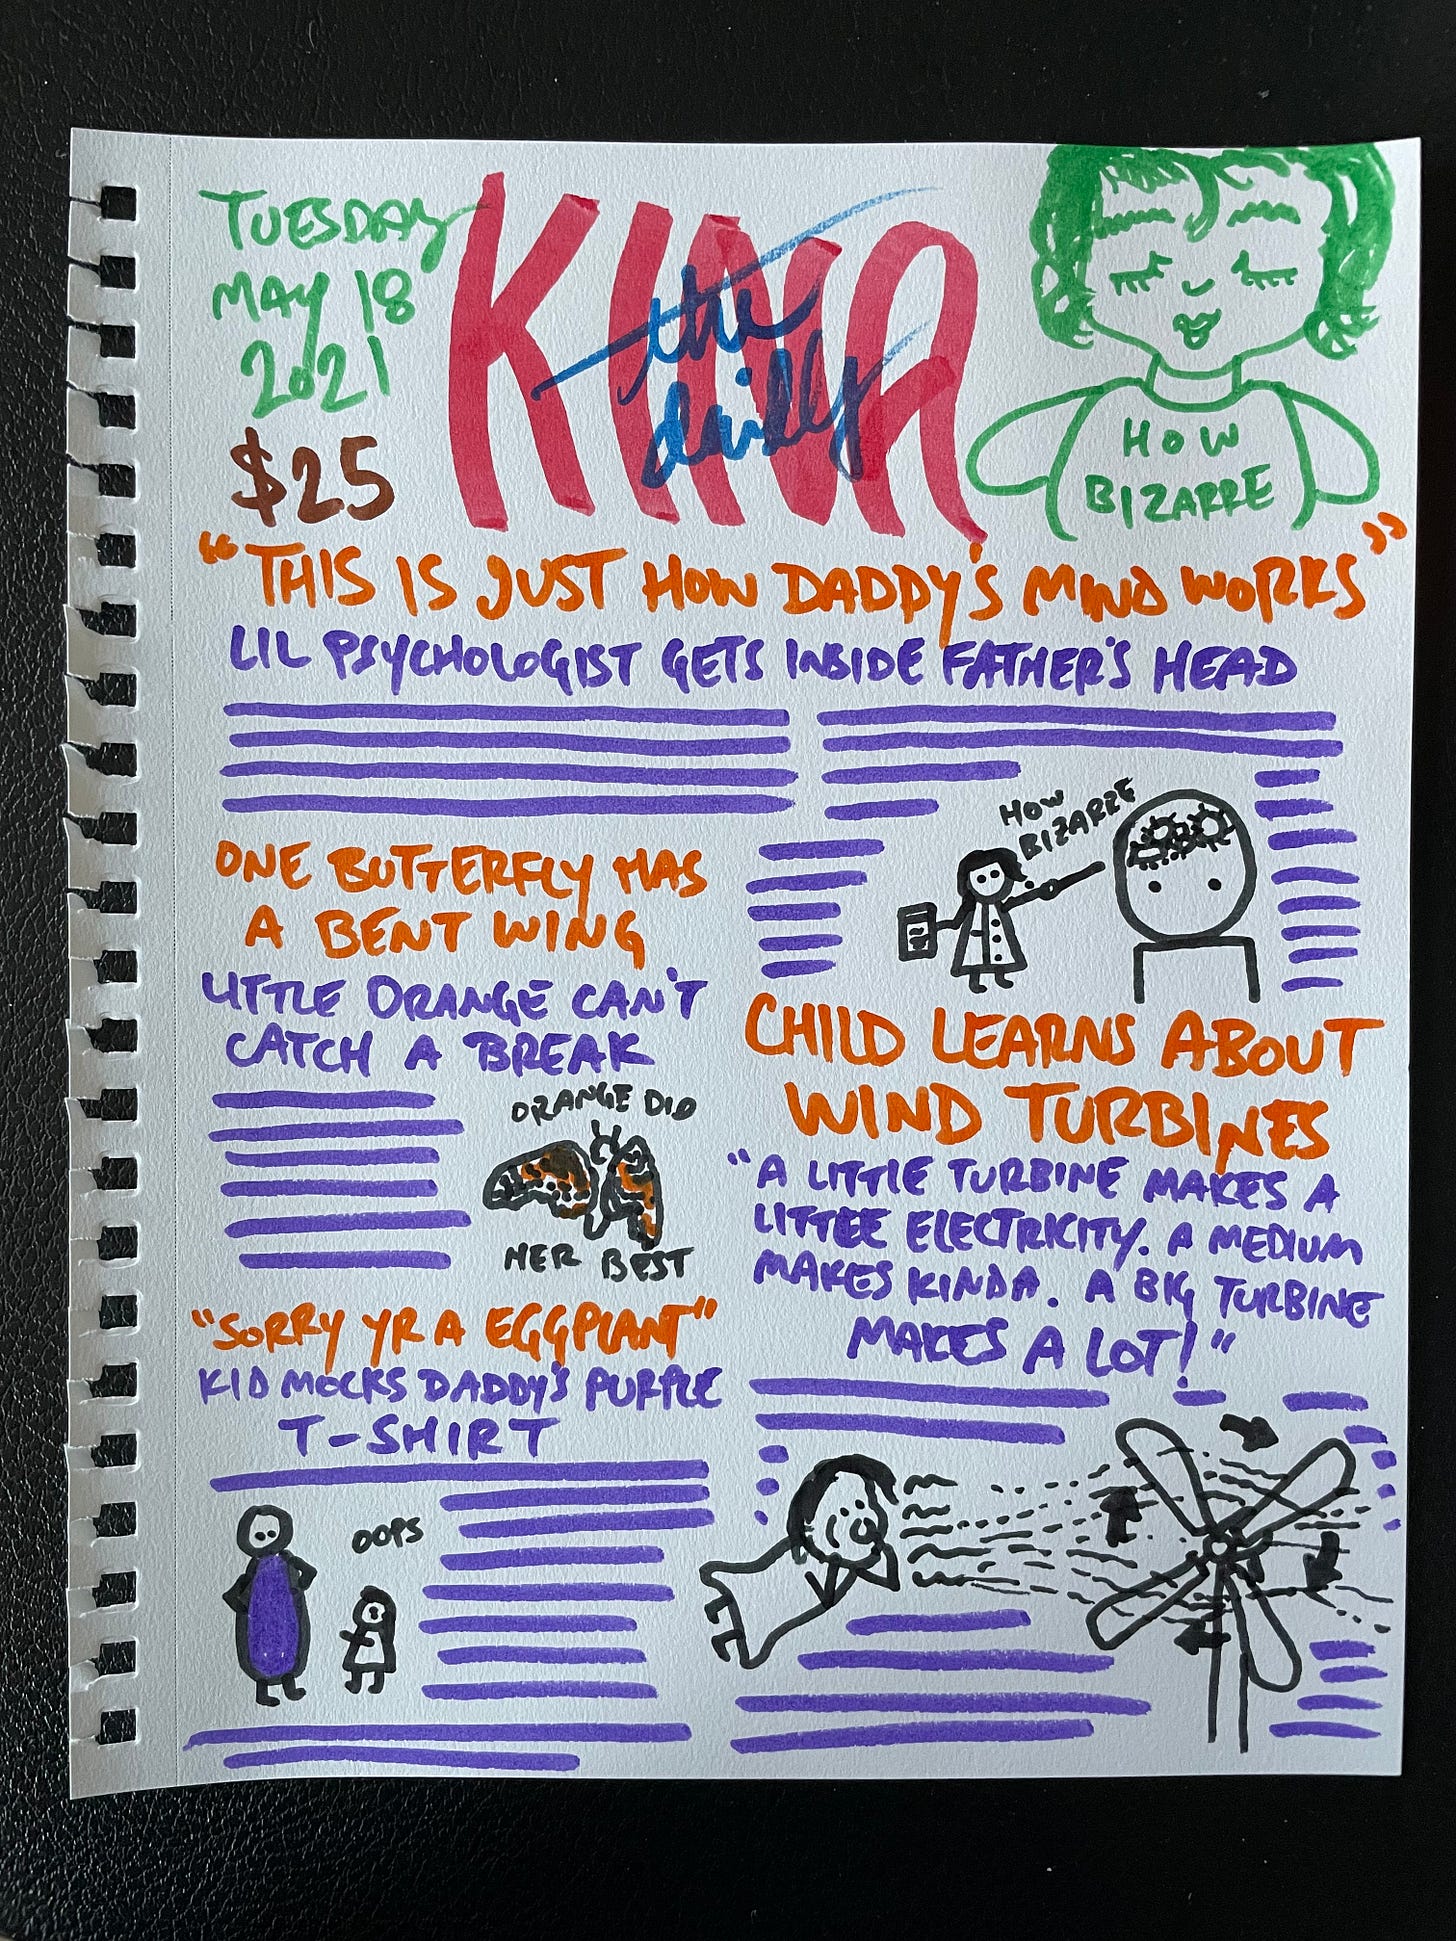 TUESDAY
MAY 18
2021
$25
KINA
the
daily
HOW
BIZARRE
"THIS IS JUST HOW DADDY'S MIND WORKS"
LIL PSYCHOLOGIST GETS INSIDE FATHER'S HEAD
HOW
BIZARRE
ONE BUTTERFLY HAS
A BENT WING
LITTLE ORANGE CAN'T
CATCH A BREAK
ORANGE DID
HER BEST
"SORRY YR A EGGPLANT"
KID MOCKS DADDY'S PURPLE
T-SHIRT
OOPS
CHILD LEARNS ABOUT
WIND TURBINES
"A LITTLE TURBINE MAKES A
LITTLE ELECTRICITY. A MEDIUM
MAKES KINDA. A BIG TURBINE
MAKES A LOT!"